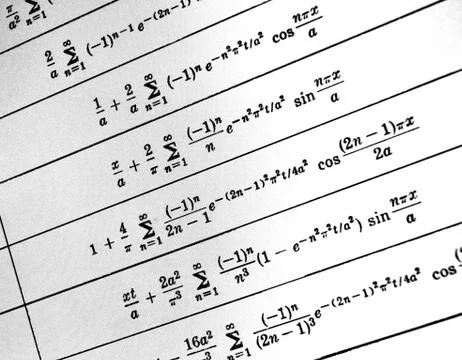 π/a² ∑_{n=1}
2/a ∑_{n=1}^{∞} (-1)^{n-1} e^{-(2n-1)²
1/a + 2/a ∑_{n=1}^{∞} (-1)^n e^{-n²π²t/a²} cos nπx/a
x/a + 2/π ∑_{n=1}^{∞} (-1)^n/n e^{-n²π²t/a²} sin nπx/a
1 + 4/π ∑_{n=1}^{∞} (-1)^n/(2n-1) e^{-(2n-1)²π²t/4a²} cos (2n-1)πx/2a
xt/a + 2a²/π³ ∑_{n=1}^{∞} (-1)^n/n³ (1 - e^{-n²π²t/a²}) sin nπx/a
- 16a²/π³ ∑_{n=1}^{∞} (-1)^n/(2n-1)³ e^{-(2n-1)²π²t/4a²} cos